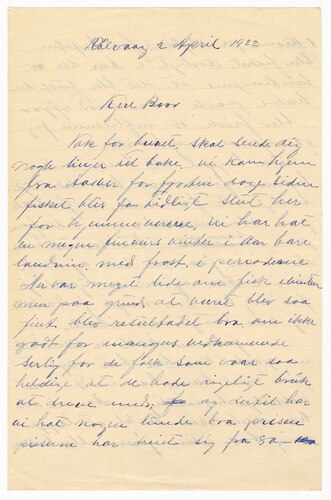 Kölvaag 2 April 1922
Kjere Bror
Tak for brevet, skal sende dig
nogle linjer til bake, vi kom hjem
fra for fjorten dage siden
fisket blev for tidligt slut her
for vi har hat
en megen vinter i Aar bare
med frost i perioderne
var meget lide om fisk i vinter
men paa grund at veiret blev saa
fint, blev resultadet bra, om ikke
godt for vedkommende
serlig for de folk som vaar saa
heldige at de hade rigeligt bruk
at drive med, og dertil har
vi hat nogen lunde bra priser
priserne har dreiet sig fra 80-